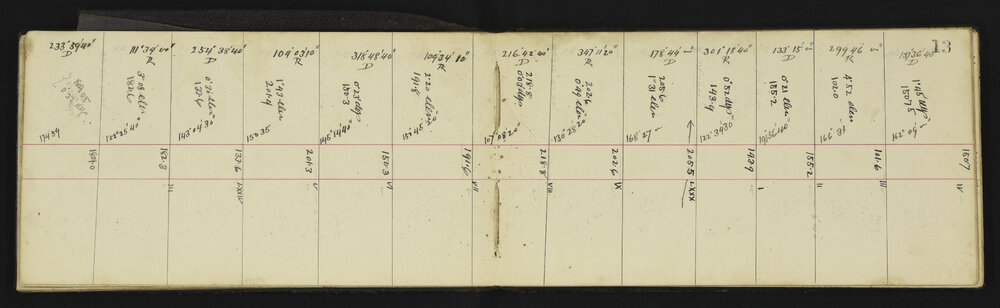 13
233° 39' 40"
D
1749
1840
111° 34' 00"
R
3° 08 elev
182.6
122° 25' 40"
182.8
III
254° 38' 40"
D
0° 30 elev
132.6
143° 04' 30"
132.6
LXXIV
104° 03' 10"
R
1° 43 elev
201.4
150 35
201.3
V
318° 48' 40"
D
0° 23 dep
150.3
145° 14' 40"
150.3
VI
109° 34' 10"
R
2° 20 elev
191.8
132° 48'
191.6
VII
216° 42' 40"
D
218.8
0° 03 dep
107° 08' 20"
218.8
VIII
347° 11' 20"
R
202.6
0° 49 elev
130° 28' 20"
202.6
IX
178° 44' 00"
D
205.6
1° 31 elev
168° 27' 00"
205.5
LXXX
301° 18' 40"
R
0° 52 dep
143.9
122° 34' 30"
143.9
I
133° 15' 00"
D
0° 21 elev
155.2
191° 56' 40"
155.2
II
299 46 00"
R
4° 52 elev
102.0
166° 31'
101.6
III
137° 36' 40"
D
1° 45 dep
150.75
162° 09'
150.7
IV